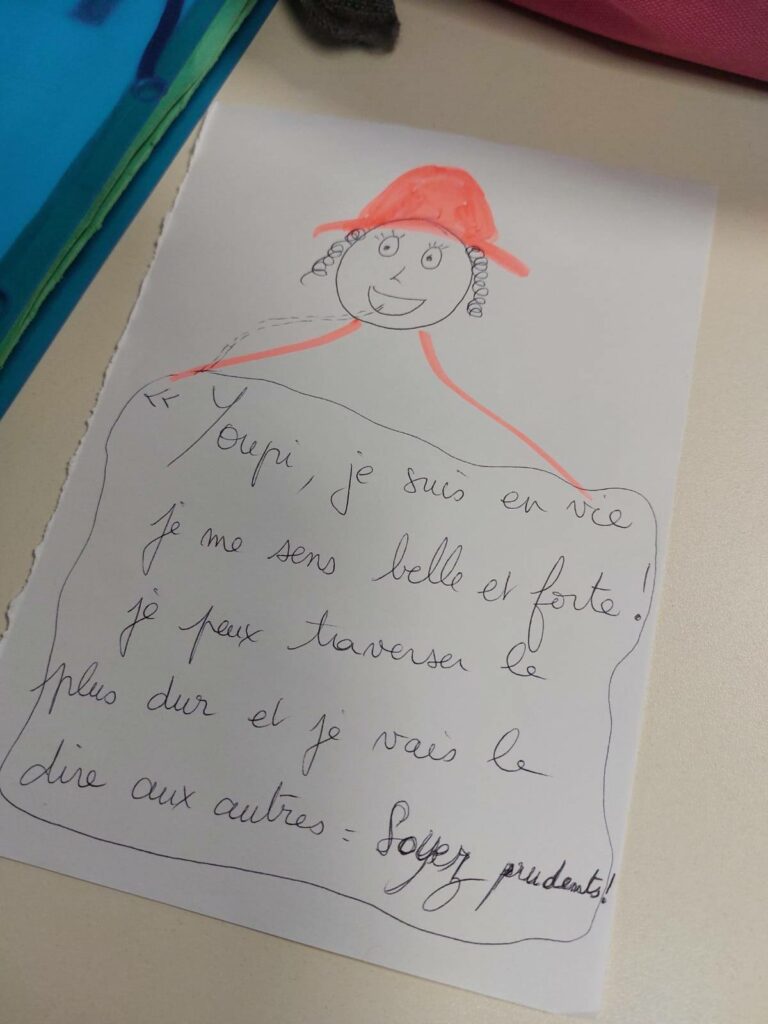 « Youpi, je suis en vie
je me sens belle et forte !
je peux traverser le
plus dur et je vais le
dire aux autres = Soyez prudents !